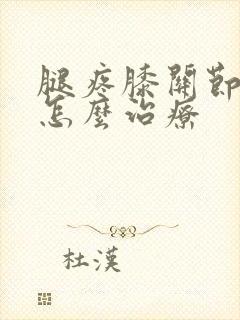 腿疼膝關節
怎麼治療
杜漢